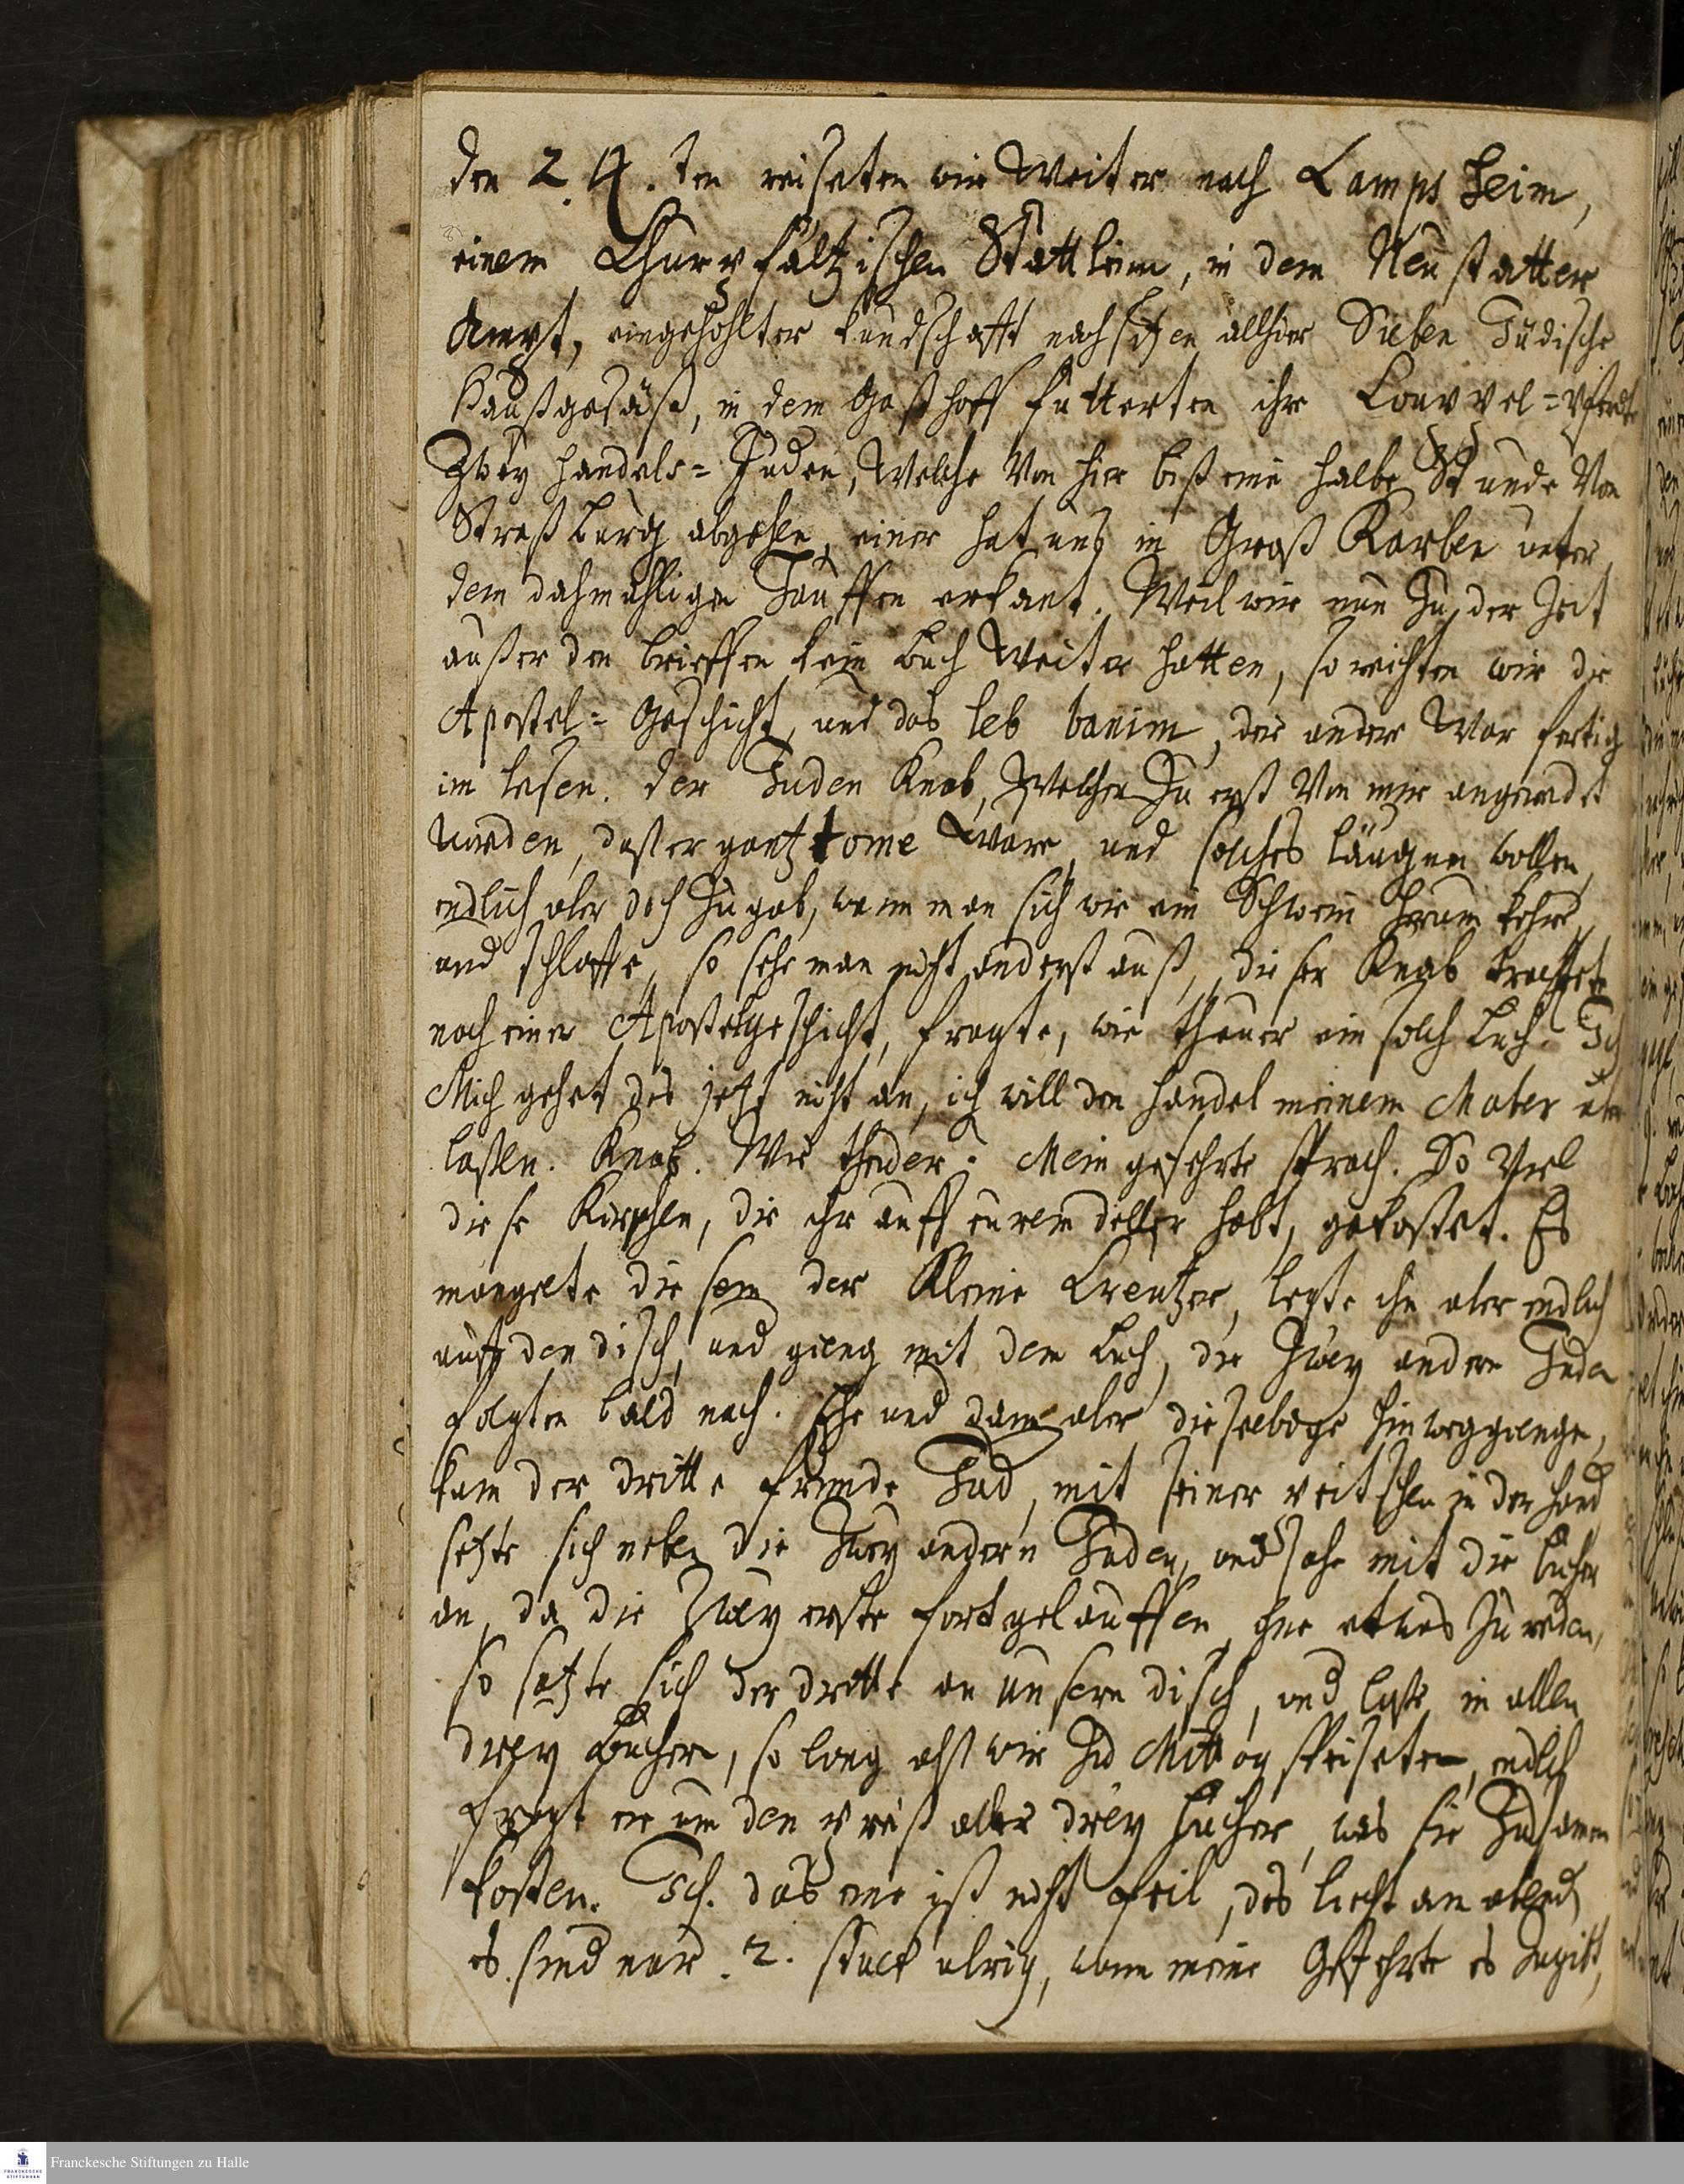 den 24. ten reiseten wir Weiter nach Lampsheim,
einem Churpfältzischen Stättleim, in dem Neustatter
Ampt, eingehohlter kundschafft nach sitzen allhier Sieben Jüdische
Haußgesäß, in dem Gasthoff futterten ihre Couppel=pferdte
Zwey handels=Juden, Welche Von hier biß eine halbe Stunde Von
Straßburg abgehen, einer hat uns in Groß Karben unter
dem dahmahligen Hauffen erkant. Weil wir nun Zu der Zeit
außer den brieffen kein buch Weiter hatten, so reichten wir die
Apostel=Geschicht, und das leb banim, der ander War fertig
im lesen. der Juden Knab, Welcher Zu erst Von mir angeredt
worden, daß er gantz tome wäre, und solches läugnen wollen,
endlich aber doch Zugab, wenn man sich wie ein Schwein herum kehre,
und schlaffe, so sehe man nicht anderst auß, dieser Knab trachtete
nach einer Apostelgeschicht, fragte, wie theuer ein solch buch? Ich
Mich gehet des jetzt nicht an, ich will den handel meinem Mater über
laßen. Knab. Wie theuer? Mein gefehrte sprach. So Viel
diese Kirschen, die ihr auff eurem deller habt, gekostet. Es
mangelte diesem der Kleine Creutzer, legte ihn aber endlich
auff den disch, und gieng mit dem buch, die Zwey andere Juden
folgten bald nach. Ehe und dann aber dieselbige hinweggiengen,
kam der dritte frembde Jud, mit seiner peitschen in der hand
setzte sich neben die Zwey andern Juden, und sahe mit die bücher
an, da die Zwey erste fortgelauffen ohne etwas Zu reden,
so satzte sich der dritte an unsern disch, und laße in allen
drey büchern, so lang alß wir Zu Mittag speiseten, endlich
fragt er um den preiß aller drey bücher, was sie Zusamen
kosten. Ich. das eine ist nicht feil, des liecht am abend
es sind nur 2. stuck übrig, wann meine Gefehrte es Zugibt,
Franckesche Stiftungen zu Halle